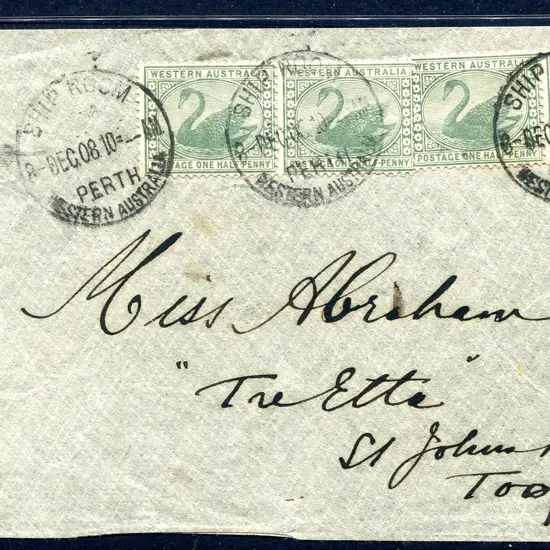 SHIP ROOM
8 DEC 08 10= AM
PERTH
WESTERN AUSTRALIA
WESTERN AUSTRALIA
POSTAGE ONE HALF PENNY
SHIP ROO
PERTH
WESTERN AUSTRALIA
WESTERN AUSTRALIA
PENNY
WESTERN AUSTRALIA
POSTAGE ONE HALF PENNY
SHIP
8 DEC
WEST
Miss Abraham
"Tre Etta"
St Johns
Too